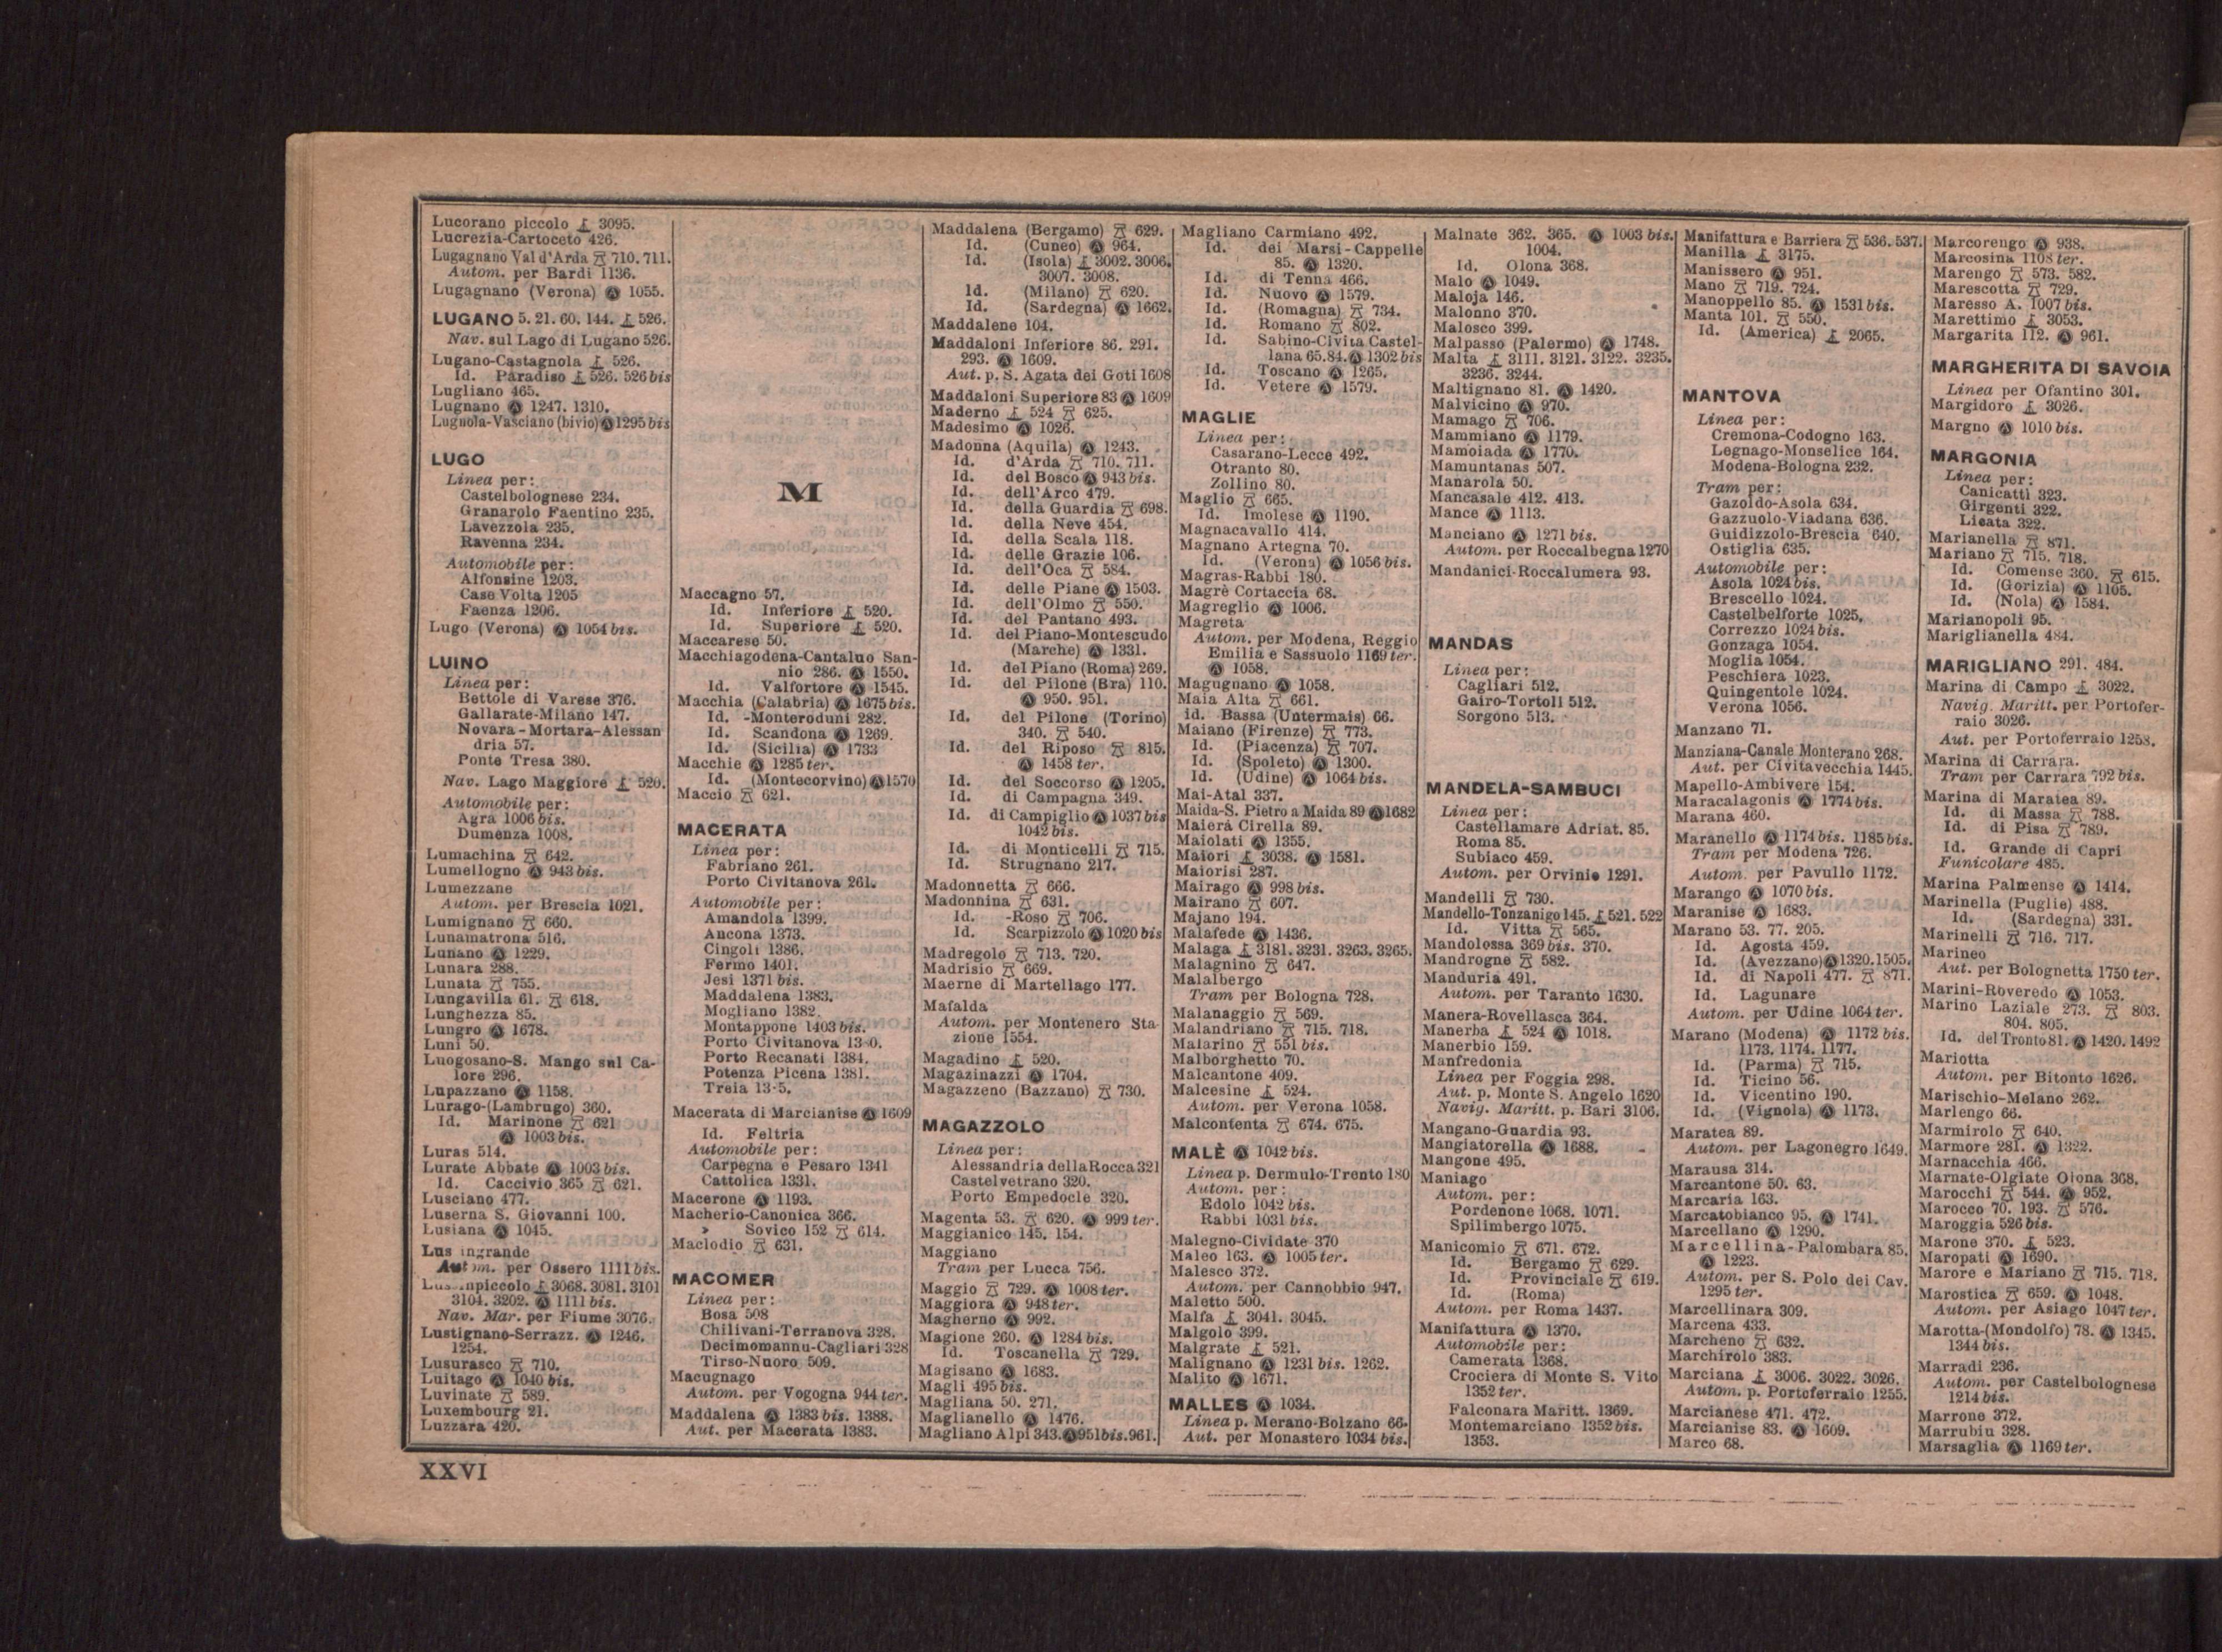 Lucorano piccolo 3095.
Lucrezia-Cartoceto 426.
Lugagnano Val d'Arda 710. 711.
Autom. per Bardi 1136.
Lugagnano (Verona) Ⓐ 1055.
LUGANO 5. 21. 60. 144. 526.
Nav. sul Lago di Lugano 526.
Lugano-Castagnola 526.
Id. Paradiso 526. 526 bis
Lugliano 465.
Lugnano Ⓐ 1247. 1310.
Lugnola-Vasciano (bivio) Ⓐ 1295 bis
LUGO
Linea per:
Castelbolognese 234.
Granarolo Faentino 235.
Lavezzola 235.
Ravenna 234.
Automobile per:
Alfonsine 1203.
Case Volta 1205
Faenza 1206.
Lugo (Verona) Ⓐ 1054 bis.
LUINO
Linea per:
Bettole di Varese 376.
Gallarate-Milano 147.
Novara-Mortara-Alessan
dria 57.
Ponte Tresa 380.
Nav. Lago Maggiore 520.
Automobile per:
Agra 1006 bis.
Dumenza 1008.
Lumachina 642.
Lumellogno Ⓐ 943 bis.
Lumezzane
Autom. per Brescia 1021.
Lumignano 660.
Lunamatrona 516.
Lunano Ⓐ 1229.
Lunara 288.
Lunata 755.
Lungavilla 61. 618.
Lunghezza 85.
Lungro Ⓐ 1678.
Luni 50.
Luogosano-S. Mango sul Ca-
lore 296.
Lupazzano Ⓐ 1158.
Lurago-(Lambrugo) 360.
Id. Marinone 621
Ⓐ 1003 bis.
Luras 514.
Lurate Abbate Ⓐ 1003 bis.
Id. Caccivio 365 621.
Lusciano 477.
Luserna S. Giovanni 100.
Lusiana Ⓐ 1045.
Lus ingrande
Autom. per Ossero 1111 bis.
Lus inpiccolo 3068. 3081. 3101
3104. 3202. Ⓐ 1111 bis.
Nav. Mar. per Fiume 3076.
Lustignano-Serrazz. Ⓐ 1246.
1254.
Lusurasco 710.
Luitago Ⓐ 1040 bis.
Luvinate 589.
Luxembourg 21.
Luzzara 420.
M
Maccagno 57.
Id. Inferiore 520.
Id. Superiore 520.
Maccarese 50.
Macchiagodena-Cantaluo San-
nio 286. Ⓐ 1550.
Id. Valfortore Ⓐ 1545.
Macchia (Calabria) Ⓐ 1675 bis.
Id. -Monteroduni 282.
Id. Scandona Ⓐ 1269.
Id. (Sicilia) Ⓐ 1733
Macchie Ⓐ 1285 ter.
Id. (Montecorvino) Ⓐ 1570
Maccio 621.
MACERATA
Linea per:
Fabriano 261.
Porto Civitanova 261.
Automobile per:
Amandola 1399.
Ancona 1373.
Cingoli 1386.
Fermo 1401.
Jesi 1371 bis.
Maddalena 1383.
Mogliano 1382.
Montappone 1403 bis.
Porto Civitanova 13 0.
Porto Recanati 1384.
Potenza Picena 1381.
Treia 13 5.
Macerata di Marcianise Ⓐ 1609
Id. Feltria
Automobile per:
Carpegna e Pesaro 1341
Cattolica 1331.
Macerone Ⓐ 1193.
Macherio-Canonica 366.
» Sovico 152 614.
Maclodio 631.
MACOMER
Linea per:
Bosa 508
Chilivani-Terranova 328.
Decimomannu-Cagliari 328
Tirso-Nuoro 509.
Macugnago
Autom. per Vogogna 944 ter.
Maddalena Ⓐ 1383 bis. 1388.
Aut. per Macerata 1383.
Maddalena (Bergamo) 629.
Id. (Cuneo) Ⓐ 964.
Id. (Isola) 3002. 3006.
3007. 3008.
Id. (Milano) 620.
Id. (Sardegna) Ⓐ 1662.
Maddalene 104.
Maddaloni Inferiore 86. 291.
293. Ⓐ 1609.
Aut. p. S. Agata dei Goti 1608
Maddaloni Superiore 83 Ⓐ 1609
Maderno 524 625.
Madesimo Ⓐ 1026.
Madonna (Aquila) Ⓐ 1243.
Id. d'Arda 710. 711.
Id. del Bosco Ⓐ 943 bis.
Id. dell'Arco 479.
Id. della Guardia 698.
Id. della Neve 454.
Id. della Scala 118.
Id. delle Grazie 106.
Id. dell'Oca 584.
Id. delle Piane Ⓐ 1503.
Id. dell'Olmo 550.
Id. del Pantano 493.
Id. del Piano-Montescudo
(Marche) Ⓐ 1331.
Id. del Piano (Roma) 269.
Id. del Pilone (Bra) 110.
Ⓐ 950. 951.
Id. del Pilone (Torino)
340. 540.
Id. del Riposo 815.
Ⓐ 1458 ter.
Id. del Soccorso Ⓐ 1205.
Id. di Campagna 349.
Id. di Campiglio Ⓐ 1037 bis
1042 bis.
Id. di Monticelli 715.
Id. Strugnano 217.
Madonnetta 666.
Madonnina 631.
Id. -Roso 706.
Id. Scarpizzolo Ⓐ 1020 bis
Madregolo 713. 720.
Madrisio 669.
Maerne di Martellago 177.
Mafalda
Autom. per Montenero Sta-
zione 1554.
Magadino 520.
Magazinazzi Ⓐ 1704.
Magazzeno (Bazzano) 730.
MAGAZZOLO
Linea per:
Alessandria della Rocca 321
Castelvetrano 320.
Porto Empedocle 320.
Magenta 53. 620. Ⓐ 999 ter.
Maggianico 145. 154.
Maggiano
Tram per Lucca 756.
Maggio 729. Ⓐ 1008 ter.
Maggiora Ⓐ 948 ter.
Magherno Ⓐ 992.
Magione 260. Ⓐ 1284 bis.
Id. Toscanella 729.
Magisano Ⓐ 1683.
Magli 495 bis.
Magliana 50. 271.
Maglianello Ⓐ 1476.
Magliano Alpi 343. Ⓐ 951 bis. 961.
Magliano Carmiano 492.
Id. dei Marsi-Cappelle
85. Ⓐ 1320.
Id. di Tenna 466.
Id. Nuovo Ⓐ 1579.
Id. (Romagna) 734.
Id. Romano 802.
Id. Sabino-Civita Castel-
lana 65. 84. Ⓐ 1302 bis
Id. Toscano Ⓐ 1265.
Id. Vetere Ⓐ 1579.
MAGLIE
Linea per:
Casarano-Lecce 492.
Otranto 80.
Zollino 80.
Maglio 665.
Id. Imolese Ⓐ 1190.
Magnacavallo 414.
Magnano Artegna 70.
Id. (Verona) Ⓐ 1056 bis.
Magras-Rabbi 180.
Magrè Cortaccia 68.
Magreglio Ⓐ 1006.
Magreta
Autom. per Modena, Reggio
Emilia e Sassuolo 1169 ter.
Ⓐ 1058.
Magugnano Ⓐ 1058.
Maia Alta 661.
id. Bassa (Untermais) 66.
Maiano (Firenze) 773.
Id. (Piacenza) 707.
Id. (Spoleto) Ⓐ 1300.
Id. (Udine) Ⓐ 1064 bis.
Mai-Atal 337.
Maida-S. Pietro a Maida 89 Ⓐ 1682
Maierà Cirella 89.
Maiolati Ⓐ 1355.
Maiori 3038. Ⓐ 1581.
Maiorisi 287.
Mairago Ⓐ 998 bis.
Mairano 607.
Majano 194.
Malafede Ⓐ 1436.
Malaga 3181. 3231. 3263. 3265.
Malagnino 647.
Malalbergo
Tram per Bologna 728.
Malanaggio 569.
Malandriano 715. 718.
Malarino 551 bis.
Malborghetto 70.
Malcantone 409.
Malcesine 524.
Autom. per Verona 1058.
Malcontenta 674. 675.
MALÈ Ⓐ 1042 bis.
Linea p. Dermulo-Trento 180
Autom. per:
Edolo 1042 bis.
Rabbi 1031 bis.
Malegno-Cividate 370
Maleo 163. Ⓐ 1005 ter.
Malesco 372.
Autom. per Cannobbio 947.
Maletto 500.
Malfa 3041. 3045.
Malgolo 399.
Malgrate 521.
Malignano Ⓐ 1231 bis. 1262.
Malito Ⓐ 1671.
MALLES Ⓐ 1034.
Linea p. Merano-Bolzano 66.
Aut. per Monastero 1034 bis.
Malnate 362. 365. Ⓐ 1003 bis.
1004.
Id. Olona 368.
Malo Ⓐ 1049.
Maloja 146.
Malonno 370.
Malosco 399.
Malpasso (Palermo) Ⓐ 1748.
Malta 3111. 3121. 3122. 3235.
3236. 3244.
Maltignano 81. Ⓐ 1420.
Malvicino Ⓐ 970.
Mamago 706.
Mammiano Ⓐ 1179.
Mamoiada Ⓐ 1770.
Mamuntanas 507.
Manarola 50.
Mancasale 412. 413.
Mance Ⓐ 1113.
Manciano Ⓐ 1271 bis.
Autom. per Roccalbegna 1270
Mandanici-Roccalumera 93.
MANDAS
Linea per:
Cagliari 512.
Gairo-Tortoli 512.
Sorgono 513.
MANDELA-SAMBUCI
Linea per:
Castellamare Adriat. 85.
Roma 85.
Subiaco 459.
Autom. per Orvinio 1291.
Mandelli 730.
Mandello-Tonzanigo 145. 521. 522
Id. Vitta 565.
Mandolossa 369 bis. 370.
Mandrogne 582.
Manduria 491.
Autom. per Taranto 1630.
Manera-Rovellasca 364.
Manerba 524 Ⓐ 1018.
Manerbio 159.
Manfredonia
Linea per Foggia 298.
Aut. p. Monte S. Angelo 1620
Navig. Maritt. p. Bari 3106.
Mangano-Guardia 93.
Mangiatorella Ⓐ 1688.
Mangone 495.
Maniago
Autom. per:
Pordenone 1068. 1071.
Spilimbergo 1075.
Manicomio 671. 672.
Id. Bergamo 629.
Id. Provinciale 619.
Id. (Roma)
Autom. per Roma 1437.
Manifattura Ⓐ 1370.
Automobile per:
Camerata 1368.
Crociera di Monte S. Vito
1352 ter.
Falconara Maritt. 1369.
Montemarciano 1352 bis.
1353.
Manifattura e Barriera 536. 537.
Manilla 3175.
Manissero Ⓐ 951.
Mano 719. 724.
Manoppello 85. Ⓐ 1531 bis.
Manta 101. 550.
Id. (America) 2065.
MANTOVA
Linea per:
Cremona-Codogno 163.
Legnago-Monselice 164.
Modena-Bologna 232.
Tram per:
Gazoldo-Asola 634.
Gazzuolo-Viadana 636.
Guidizzolo-Brescia 640.
Ostiglia 635.
Automobile per:
Asola 1024 bis.
Brescello 1024.
Castelbelforte 1025.
Correzzo 1024 bis.
Gonzaga 1054.
Moglia 1054.
Peschiera 1023.
Quingentole 1024.
Verona 1056.
Manzano 71.
Manziana-Canale Monterano 268.
Aut. per Civitavecchia 1445.
Mapello-Ambivere 154.
Maracalagonis Ⓐ 1774 bis.
Marana 460.
Maranello Ⓐ 1174 bis. 1185 bis.
Tram per Modena 726.
Autom. per Pavullo 1172.
Marango Ⓐ 1070 bis.
Maranise Ⓐ 1683.
Marano 53. 77. 205.
Id. Agosta 459.
Id. (Avezzano) Ⓐ 1320. 1505.
Id. di Napoli 477. 871.
Id. Lagunare
Autom. per Udine 1064 ter.
Marano (Modena) Ⓐ 1172 bis.
1173. 1174. 1177.
Id. (Parma) 715.
Id. Ticino 56.
Id. Vicentino 190.
Id. (Vignola) Ⓐ 1173.
Maratea 89.
Autom. per Lagonegro 1649.
Marausa 314.
Marcantone 50. 63.
Marcaria 163.
Marcatobianco 95. Ⓐ 1741.
Marcellano Ⓐ 1290.
Marcellina-Palombara 85.
Ⓐ 1223.
Autom. per S. Polo dei Cav.
1295 ter.
Marcellinara 309.
Marcena 433.
Marcheno 632.
Marchirolo 383.
Marciana 3006. 3022. 3026.
Autom. p. Portoferraio 1255.
Marcianese 471. 472.
Marcianise 83. Ⓐ 1609.
Marco 68.
Marcorengo Ⓐ 938.
Marcosina 1108 ter.
Marengo 573. 582.
Marescotta 729.
Maresso A. 1007 bis.
Marettimo 3053.
Margarita 112. Ⓐ 961.
MARGHERITA DI SAVOIA
Linea per Ofantino 301.
Margidoro 3026.
Margno Ⓐ 1010 bis.
MARGONIA
Linea per:
Canicattì 323.
Girgenti 322.
Licata 322.
Marianella 871.
Mariano 715. 718.
Id. Comense 360. 615.
Id. (Gorizia) Ⓐ 1105.
Id. (Nola) Ⓐ 1584.
Marianopoli 95.
Mariglianella 484.
MARIGLIANO 291. 484.
Marina di Campo 3022.
Navig. Maritt. per Portofer-
raio 3026.
Aut. per Portoferraio 1258.
Marina di Carrara.
Tram per Carrara 792 bis.
Marina di Maratea 89.
Id. di Massa 788.
Id. di Pisa 789.
Id. Grande di Capri
Funicolare 485.
Marina Palmense Ⓐ 1414.
Marinella (Puglie) 488.
Id. (Sardegna) 331.
Marinelli 716. 717.
Marineo
Aut. per Bolognetta 1750 ter.
Marini-Roveredo Ⓐ 1053.
Marino Laziale 273. 803.
804. 805.
Id. del Tronto 81. Ⓐ 1420. 1492
Mariotta
Autom. per Bitonto 1626.
Marischio-Melano 262.
Marlengo 66.
Marmirolo 640.
Marmore 281. Ⓐ 1322.
Marnacchia 466.
Marnate-Olgiate Olona 368.
Marocchi 544. Ⓐ 952.
Marocco 70. 193. 576.
Maroggia 526 bis.
Marone 370. 523.
Maropati Ⓐ 1690.
Marore e Mariano 715. 718.
Marostica 659. Ⓐ 1048.
Autom. per Asiago 1047 ter.
Marotta-(Mondolfo) 78. Ⓐ 1345.
1344 bis.
Marradi 236.
Autom. per Castelbolognese
1214 bis.
Marrone 372.
Marrubiu 328.
Marsaglia Ⓐ 1169 ter.
XXVI